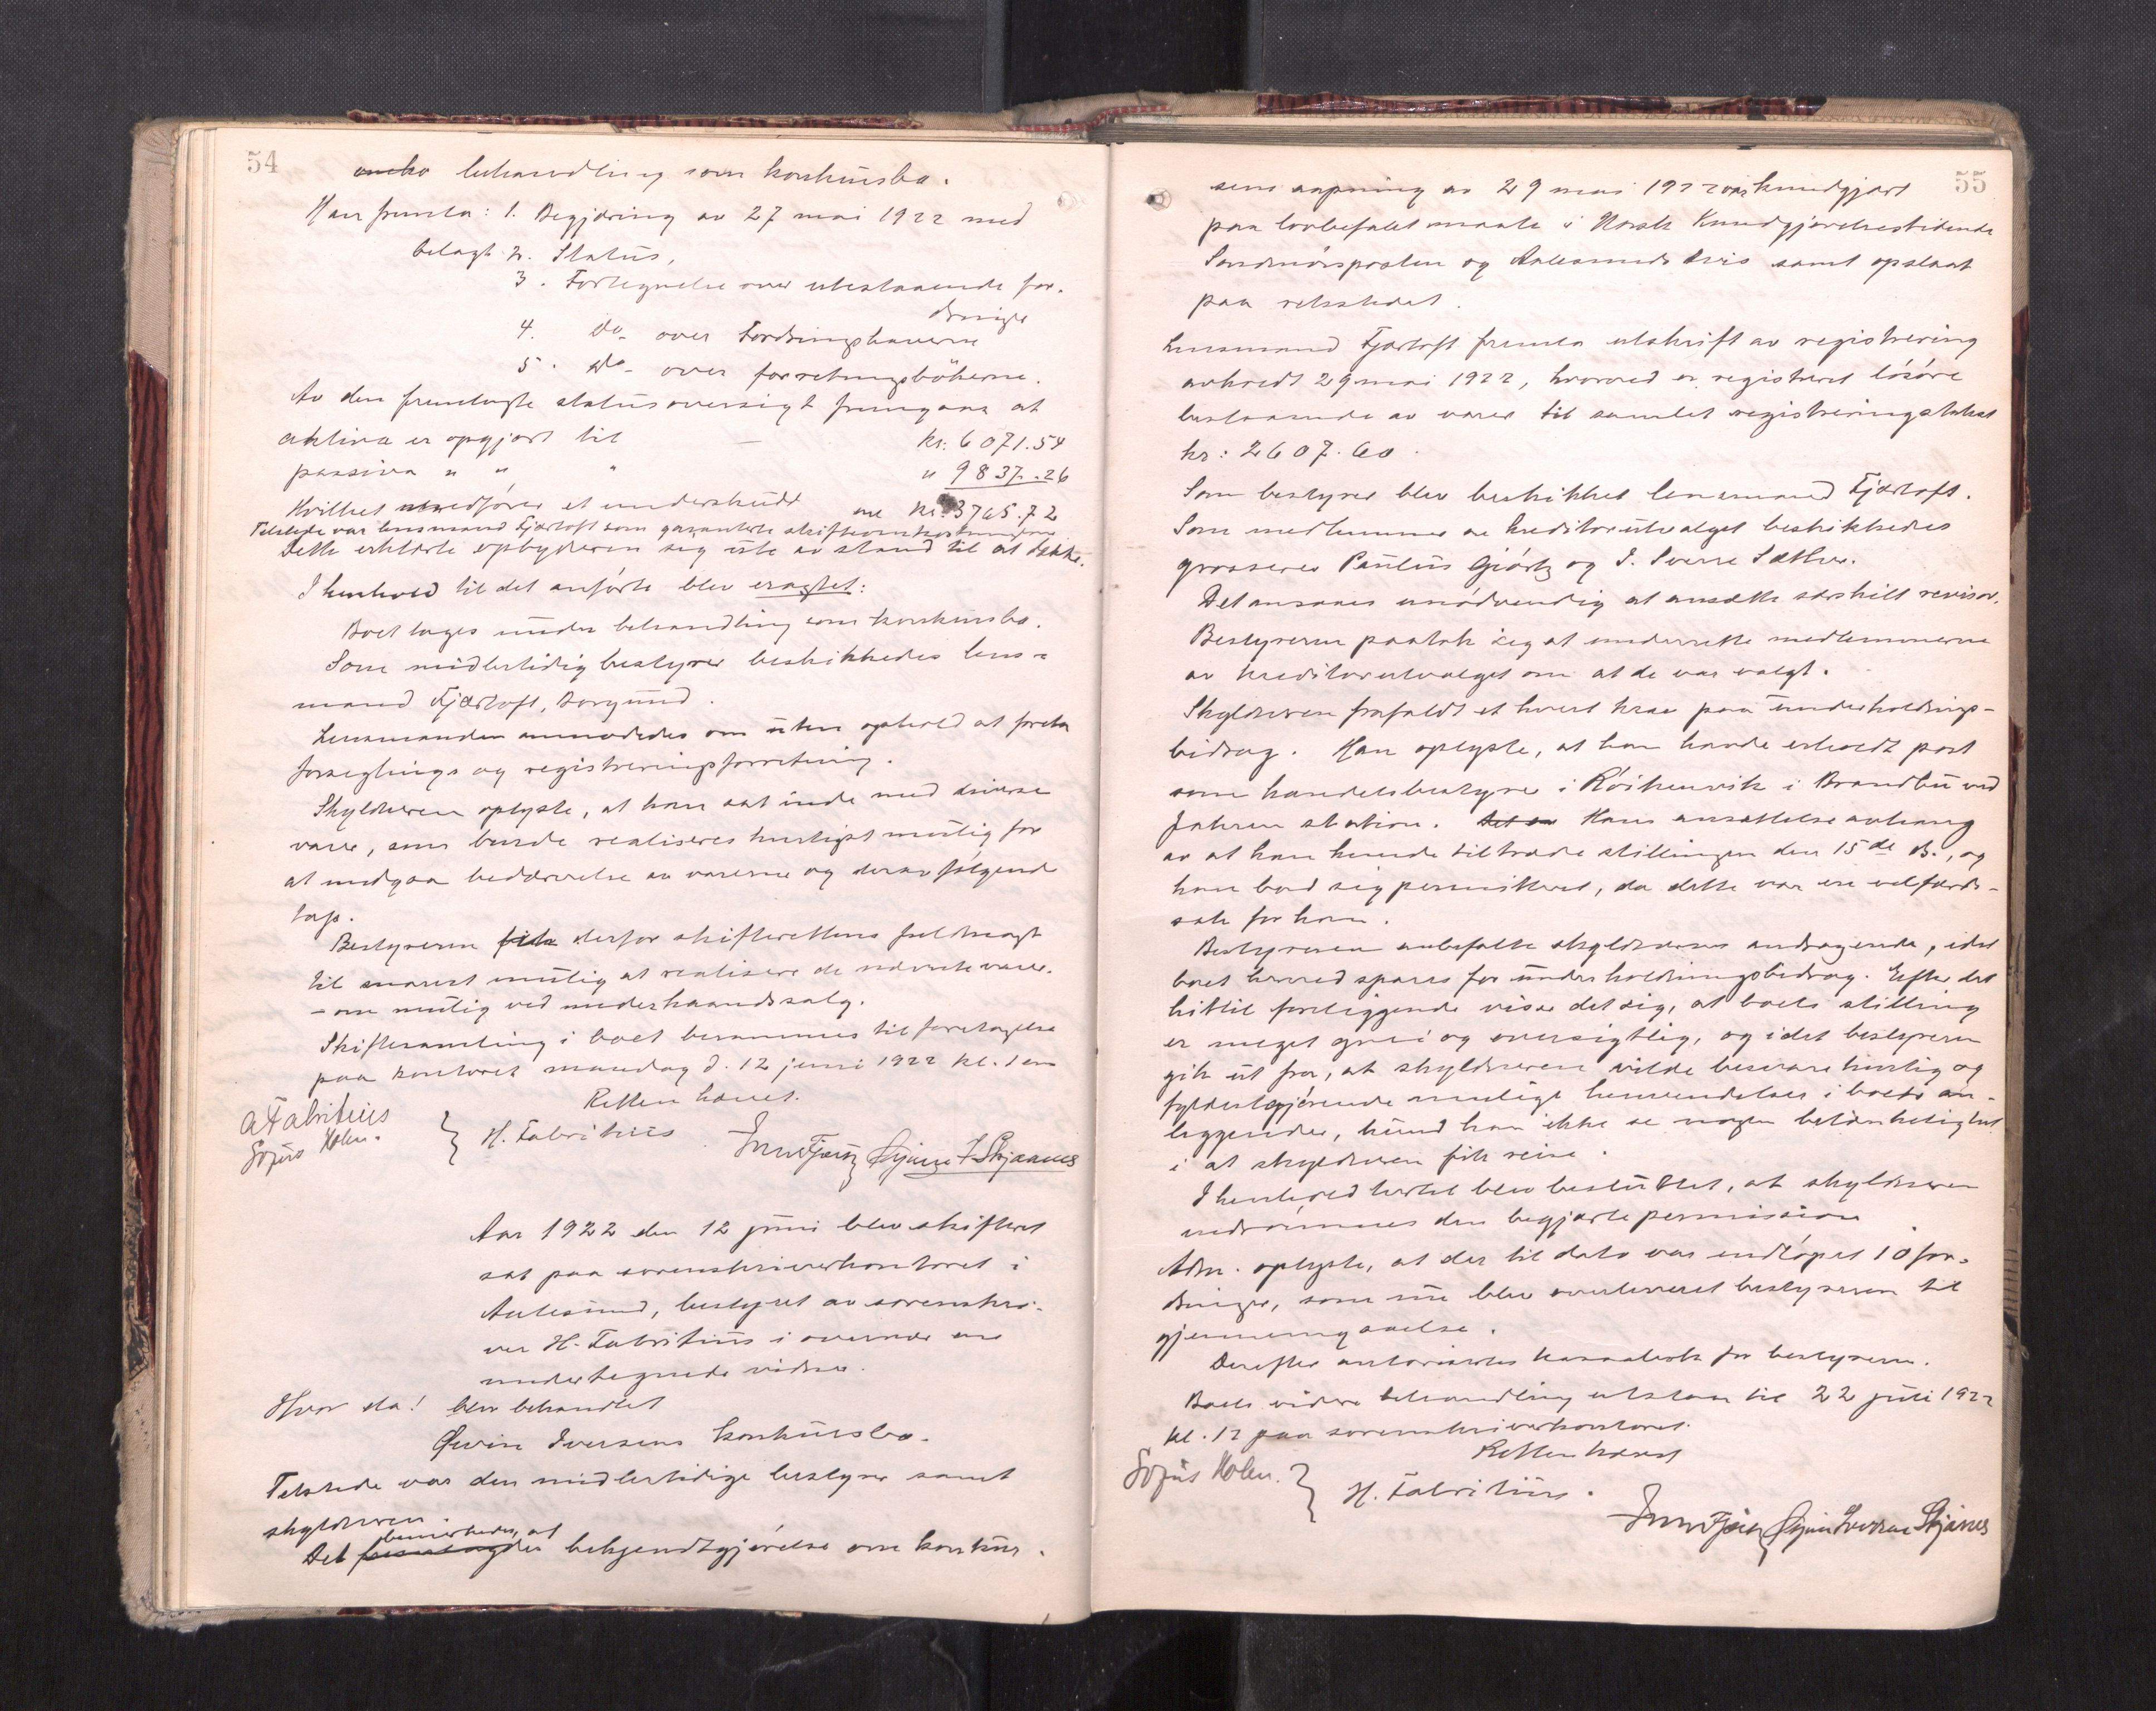 54
behandling som konkursbo.
Han fremla: 1. Begjæring av 27 mai 1922 med
bilagt 2. Status,
3. Fortegnelse over utestaaende for-
dringer
4. do- over Fordringshaverne
5. do- over forretningsbökerne.
Av den fremlagte statusoversigt fremgaar at
aktiva er opgjort til — kr: 6071.54
passiva " " " " 9837.26
Hvilket medförer et underskudd av kr: 3765.72
Tilstede var lensmand Fjærtoft som garanterte skifteomkostningerne
Dette erklærte opbyderen sig ute av stand til at dække.
I henhold til det anförte blev eragtet:
Boet tages under behandling som konkursbo.
Som midlertidig bestyrer beskikkedes lens-
mand Fjærtoft, Borgund.
Lensmanden anmodedes om uten ophold at foreta
forseglings og registreringsforretning.
Skyldneren oplyste, at han sat inde med diverse
varer, som burde realiseres hurtigst mulig for
at undgaa bedærvelse av varerne og derav fölgende
tap.
Bestyreren fik derfor skifterettens fuldmagt
til snarest mulig at realisere de nævnte varer.
- om mulig ved underhaandssalg.
Skiftesamling i boet berammes til foretagelse
paa kontoret mandag d. 12 juni 1922 kl. 1 em
Retten hævet.
A Fabritius
Sofus Holm.
H. Fabritius
Aar 1922 den 12 juni blev skifteret
sat paa sorenskriverkontoret i
Aalesund, bestyret av sorenskri-
ver H. Fabritius i overvær av
undertegnede vidner.
Hvor da! blev behandlet
Iversens konkursbo.
Tilstede var den midlertidige bestyrer samt
skyldneren.
bemerkedes, at
Det bekjendtgjörelse om konkur-
55
sens aapning av 29 mai 1922 var kundgjort
paa lovbefalet maate i Norsk Kundgjørelsestidende
Söndmörsposten og Aalesunds Avis samt opslaat
paa retsstedet.
Lensmand Fjærtoft fremla utskrift av registrering
avholdt 29 mai 1922, hvorved er registreret lösöre
bestaaende av varer til samlet registreringstakst
kr: 2607.60.
Som bestyrer blev beskikket lensmand Fjærtoft.
Som medlemmer av kreditorutvalget beskikkedes
grosserer Paulus Giörtz og I. Sverre Sæther.
Det ansaaes unödvendig at ansætte særskilt revisor.
Bestyreren paatok sig at underrette medlemmerne
av kreditorutvalget om at de var valgt.
Skyldneren frafaldt et hvert krav paa underholdnings-
bidrag. Han oplyste, at han havde erholdt post
som handelsbestyrer i Röikenvik i Brandbu ved
Jahren station. Det er Hans ansættelse avhang
av at han kunde tiltræde stillingen den 15de ds., og
han bad sig permitteret, da dette var en velfærds-
sak for ham.
Bestyreren anbefalte skyldnerens andragende, idet
boet herved spares for underholdningsbidrag. Efter det
hittil foreliggende viser det sig, at boets stilling
er meget grei og oversigtlig, og idet bestyreren
gik ut fra, at skyldneren vilde besvare hurtig og
fyldestgjörende mulige henvendelser i boets an-
liggender, kund han ikke se nogen betænkelighet
i at skyldneren fik reise.
I henhold hertil blev besluttet, at skyldneren
indrömmes den begjærte permission.
Adm. oplyste, at der til dato var indlöpet 10 for-
dringer, som nu blev overleveret bestyreren til
gjennemgaaelse.
Derefter autorisertes kassabok for bestyreren.
Boets videre behandling utstaar til 22 juli 1922
kl. 12 paa sorenskriverkontoret.
Retten hævet
Sofus Holm.
H. Fabritius.